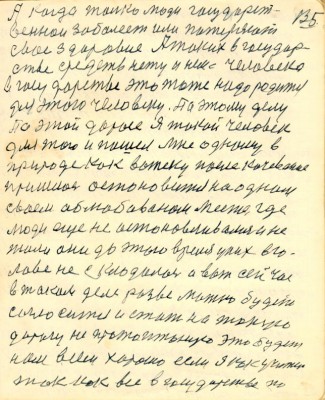 135.
А когда только люди государст-
венной заболеет или потеряют
свое здоровие А таких в государ-
стве средств нету и нек- человека
в государстве это тоже надо родити
для этого человеку. По этому делу
По этой дороге Я такой человек
для того и пошел мне одному в
природе как вотеку после качества
пришлося остоновится на одном
своем облюбаваном месте, где
люди еще не остоновливалися и не
жили они до этого время у них в го-
лове не складалося а вот сейчас
в таком деле разве можно будет
согласится и стат на такую
дорогу не простительную это будет
нам всем хорошо если Я как учител
так как все в государстве по